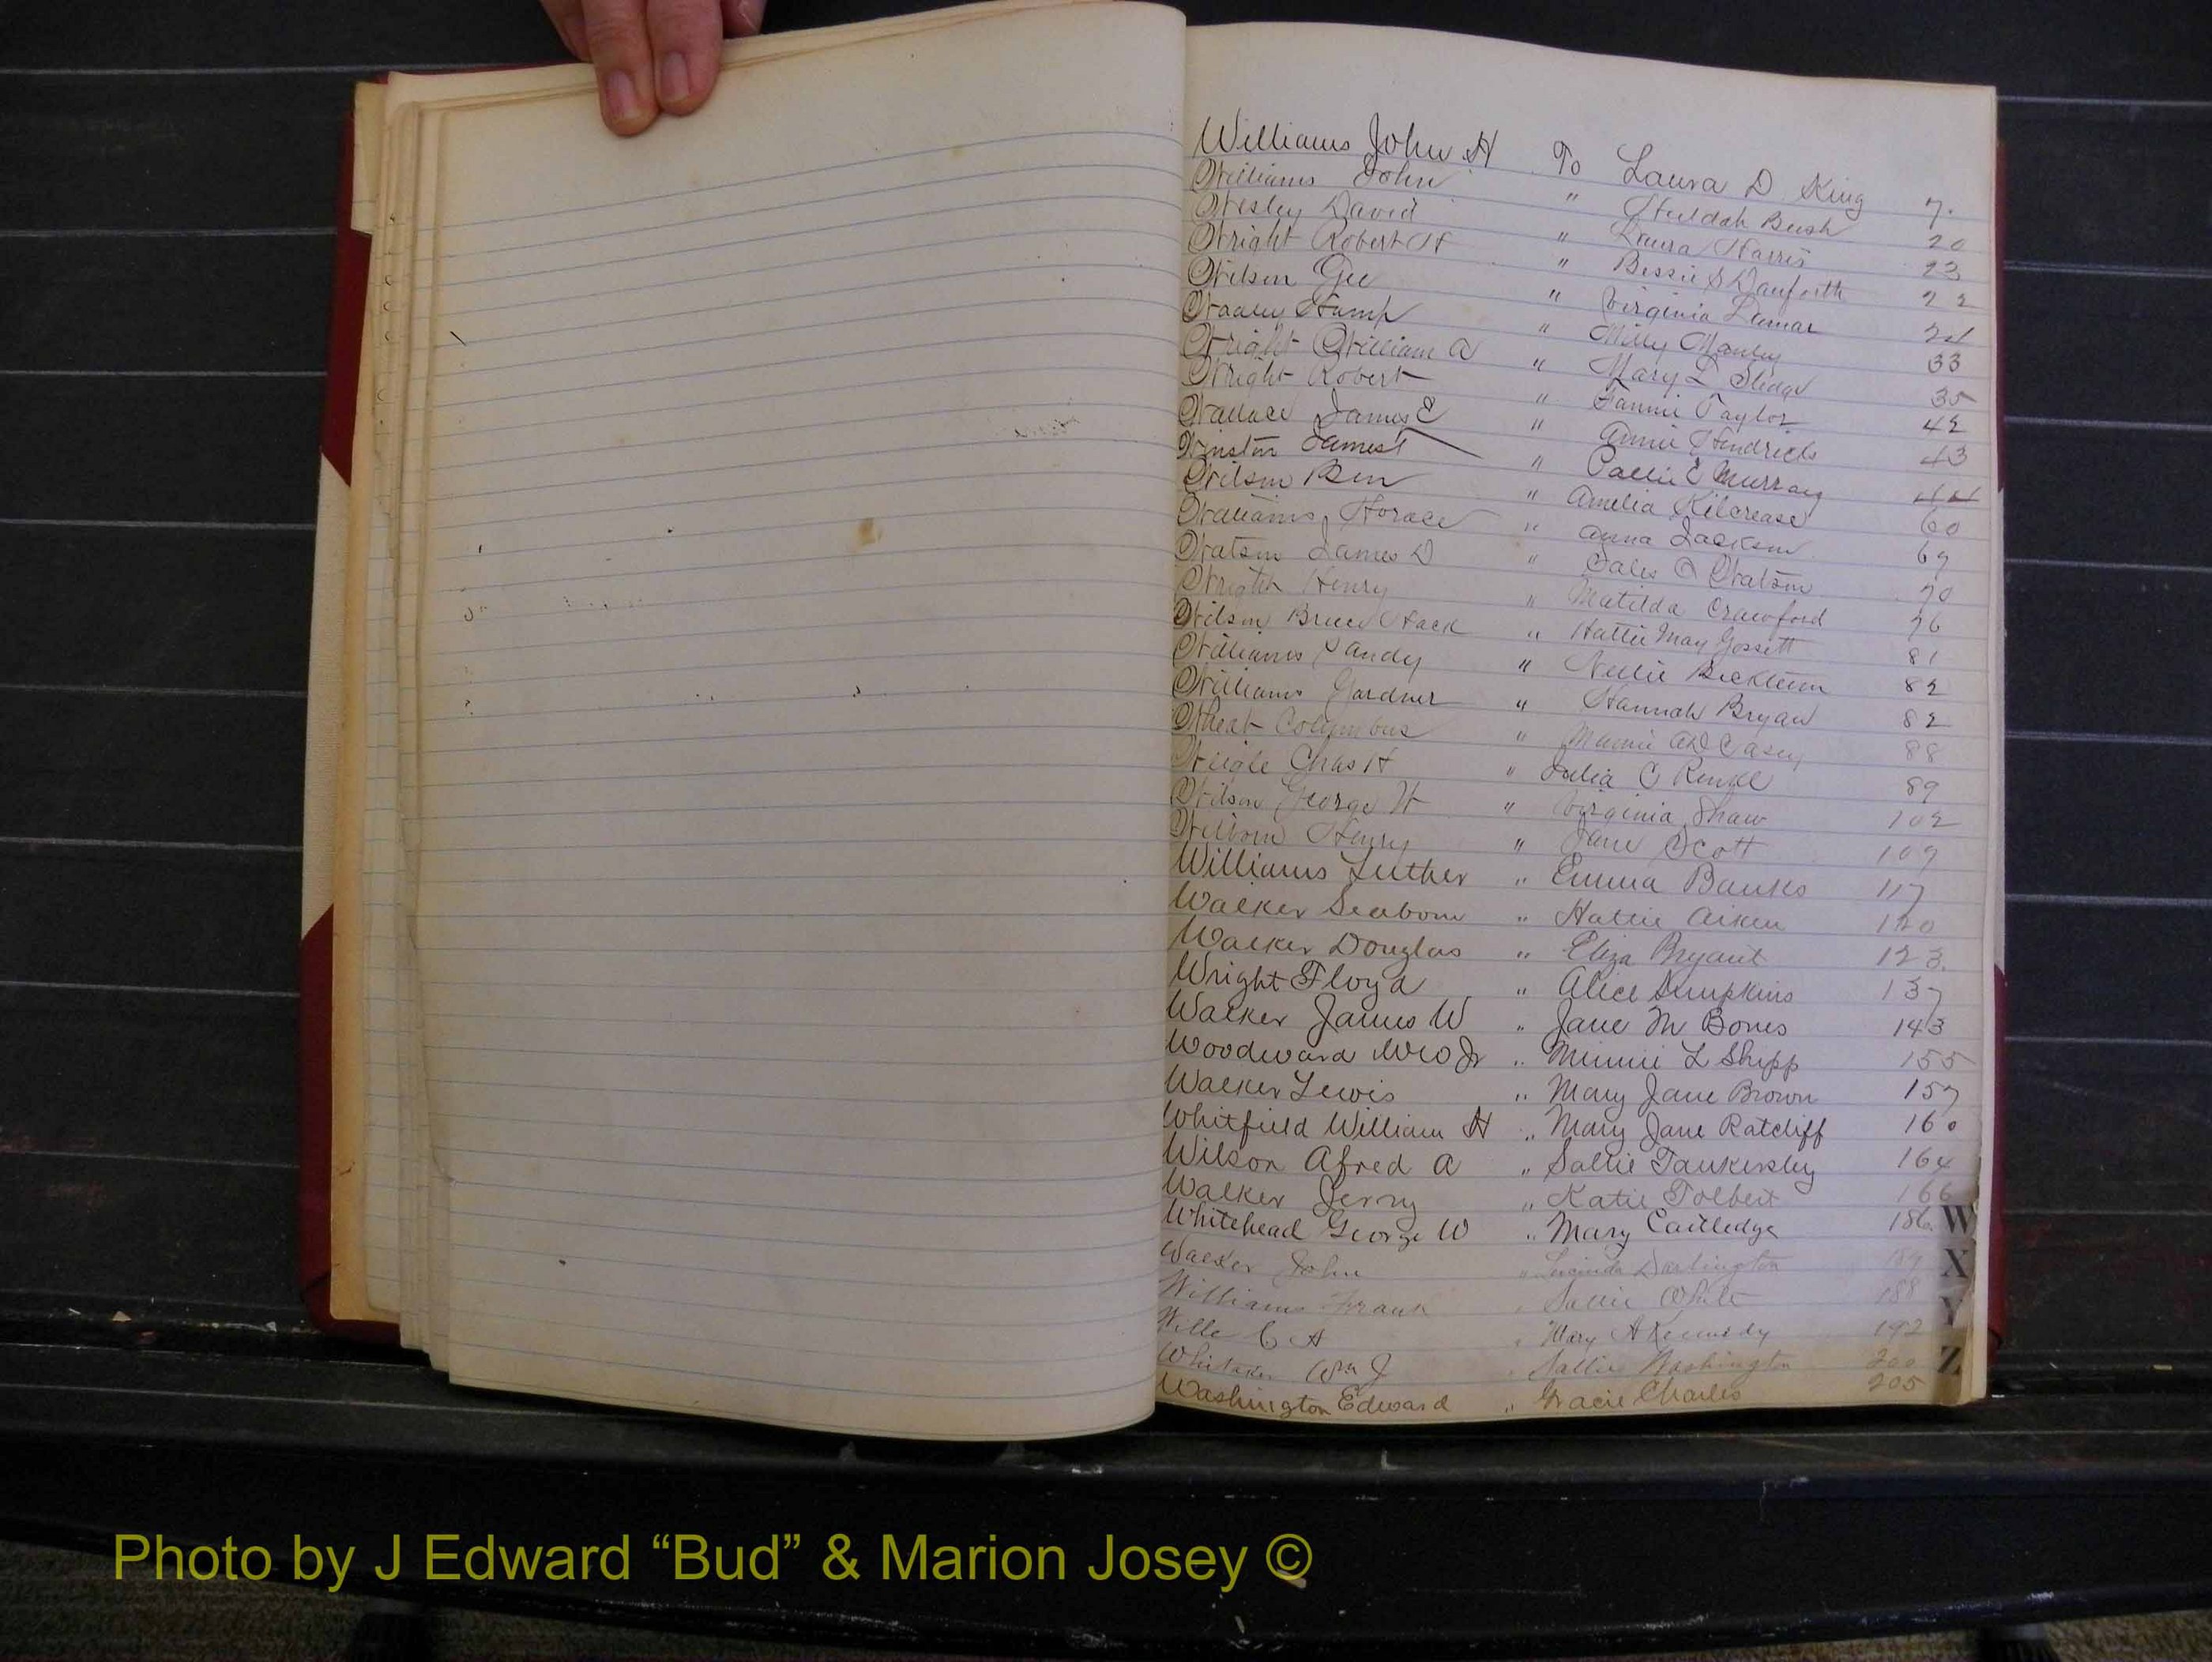 Williams John H To Laura D. King 7.
Williams John " Huldah Bush 20
Wesley David " Laura Harris 23
Wright Robert H " Bessie S Danforth 22
Wilson Gee " Virginia Lamar 24
Hamp " Milly Manley 33
Wright William A " Mary L Sledge 35
Wright Robert " Fannie Taylor 42
Wallace James E " Annie Hendricks 43
Winston James T " Callie E Murray 44
Wilson Ben " Amelia Kilcrease 60
Williams, Horace " Anna Jackson 67
Watson James D " A Watson 70
Wright Henry " Matilda Crawford 76
Wilson Bruce Hack " Hattie May Gossett 81
Williams Sandy " Nellie 82
Williams Gardner " Hannah Bryan 82
Wheat Columbus " Mamie Casey 88
Weigle Chas H " Julia C Renkl 89
Wilson George W " Virginia Shaw 102
Welborn Henry " Jane Scott 109
Williams Luther " Emma Banks 117
Walker Seaborn " Hattie Aiken 120
Walker Douglas " Eliza Bryant 123.
Wright Floyd " Alice Simpkins 137
Walker James W " Jane M Bones 143
Woodward Jr " Minnie L Shipp 155
Walker Lewis " Mary Jane Brown 157
Whitfield William H " Mary Jane Ratcliff 160
Wilson Afred A " Sallie Tankersley 164
Walker Jerry " Katie Tolbert 166
Whitehead George W " Mary Cartledge 186 W
Walker John " Lucinda Darlington 189 X
Williams Frank " Sallie White 188 Y
Wille C A " Mary A Kennedy 192
Whitaker Wm J " Sallie Washington 200 Z
Washington Edward " Gracie Charles 205
Photo by J Edward “Bud” & Marion Josey ©